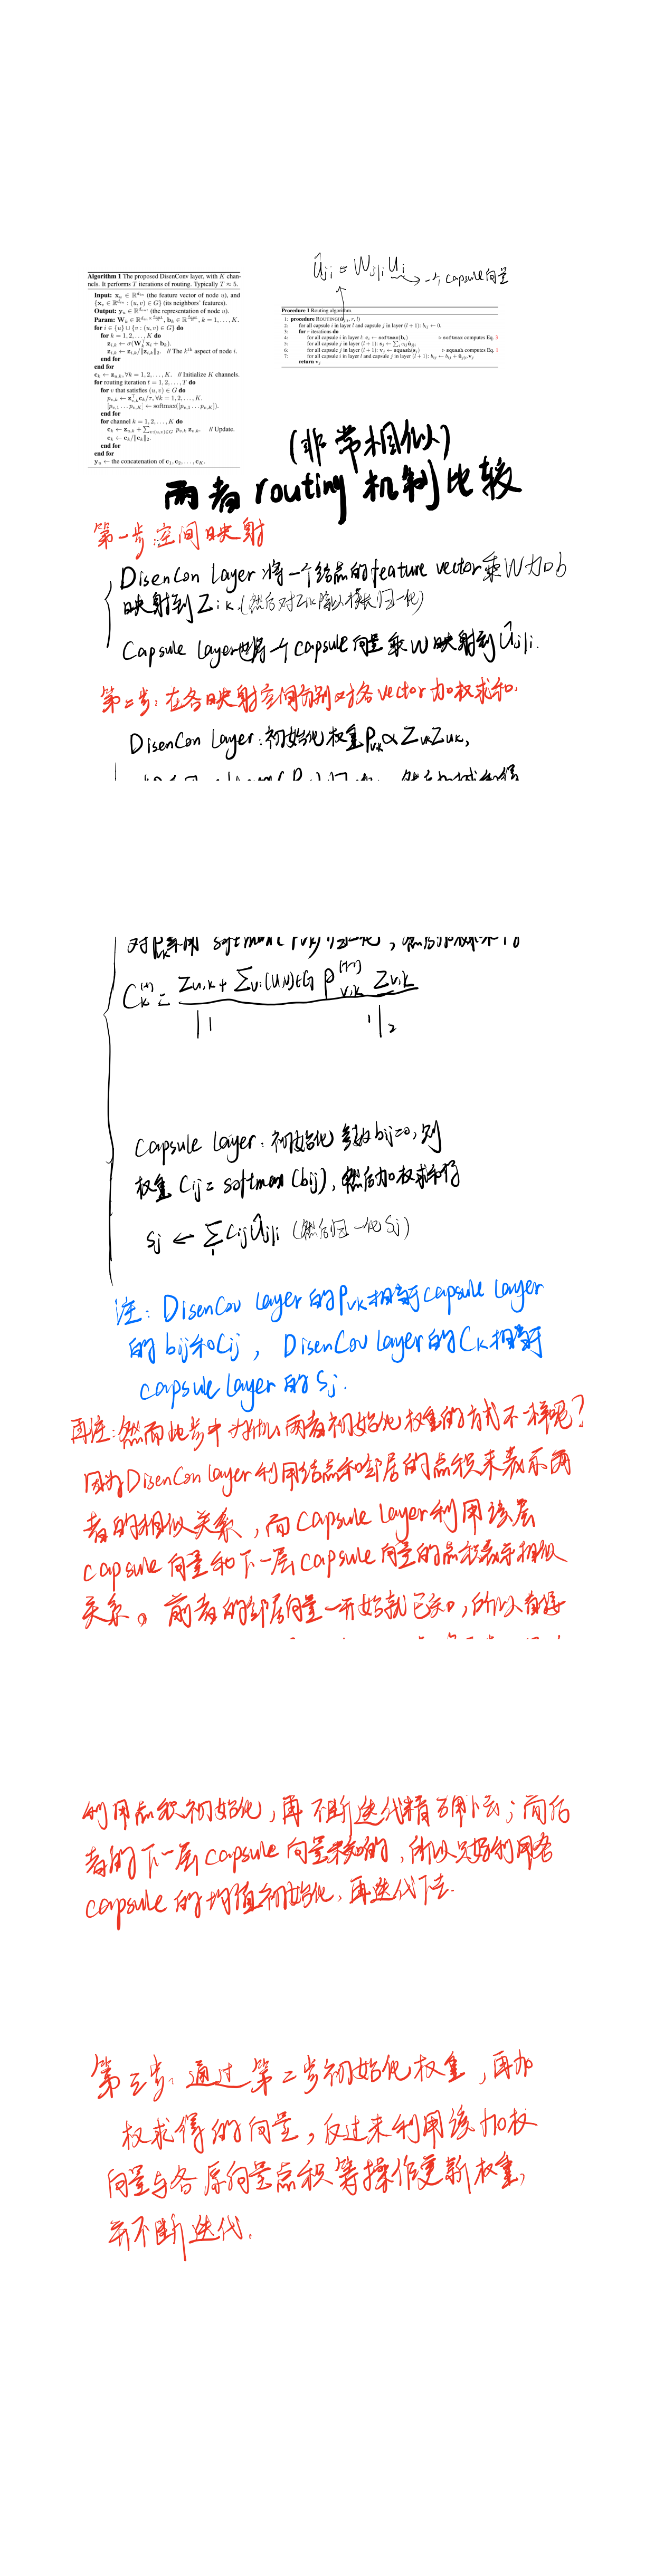 Algorithm 1 The proposed DisenConv layer, with K channels. It performs T iterations of routing. Typically T ≈ 5.
Input: x_u ∈ ℝ^{d_in} (the feature vector of node u), and
{x_v ∈ ℝ^{d_in} : (u, v) ∈ G} (its neighbors' features).
Output: y_u ∈ ℝ^{d_out} (the representation of node u).
Param: W_k ∈ ℝ^{d_in × d_out/K}, b_k ∈ ℝ^{d_out/K}, k = 1, . . . , K.
for i ∈ {u} ∪ {v : (u, v) ∈ G} do
for k = 1, 2, . . . , K do
z_{i,k} ← σ(W_k^⊤ x_i + b_k).
z_{i,k} ← z_{i,k}/‖z_{i,k}‖_2. // The k^th aspect of node i.
end for
end for
c_k ← z_{u,k}, ∀k = 1, 2, . . . , K. // Initialize K channels.
for routing iteration t = 1, 2, . . . , T do
for v that satisfies (u, v) ∈ G do
p_{v,k} ← z_{v,k}^⊤ c_k/τ, ∀k = 1, 2, . . . , K.
[p_{v,1} . . . p_{v,K}] ← softmax([p_{v,1} . . . p_{v,K}]).
end for
for channel k = 1, 2, . . . , K do
c_k ← z_{u,k} + ∑_{v:(u,v)∈G} p_{v,k} z_{v,k}. // Update.
c_k ← c_k/‖c_k‖_2.
end for
end for
y_u ← the concatenation of c_1, c_2, . . . , c_K.
û_{j|i} = W_{j|i} u_i → 一个capsule向量
Procedure 1 Routing algorithm.
1: procedure ROUTING(û_{j|i}, r, l)
2: for all capsule i in layer l and capsule j in layer (l + 1): b_{ij} ← 0.
3: for r iterations do
4: for all capsule i in layer l: c_i ← softmax(b_i) ▷ softmax computes Eq. 3
5: for all capsule j in layer (l + 1): s_j ← ∑_i c_{ij} û_{j|i}
6: for all capsule j in layer (l + 1): v_j ← squash(s_j) ▷ squash computes Eq. 1
7: for all capsule i in layer l and capsule j in layer (l + 1): b_{ij} ← b_{ij} + û_{j|i}.v_j
return v_j
(非常相似)
两者routing机制比较
第一步:空间映射
DisenCon Layer:将一个结点的feature vector乘W加b
映射到Z_{ik}.(然后对Z_{ik}除以模长归一化)
Capsule Layer也将一个capsule向量乘W映射到û_{j|i}.
第二步:在各映射空间分别对各vector加权求和.
DisenCon Layer:初始化权重P_{vk}∝Z_{vk}Z_{uk},
对P_{vk}采用softmax(P_{vk})归一化,然后加权求得
C_k^{(t)} = Z_{u,k} + ∑_{v:(u,v)∈G} P_{v,k}^{(t-1)} Z_{v,k}
‖ ‖_2
Capsule Layer:初始化参数b_{ij}=0,则
权重C_{ij}=softmax(b_{ij}),然后加权求和得
S_j ← ∑_i C_{ij}û_{j|i} (然后归一化S_j)
注:DisenCov Layer的P_{vk}相当于capsule layer
的b_{ij}和C_{ij}, DisenCov Layer的C_k相当于
capsule layer的S_j.
再注:然而此步中为什么两者初始化权重的方式不一样呢?
因为DisenCon layer利用结点和邻居的点积来表示两
者的相似关系,而Capsule Layer利用该层
capsule向量和下一层capsule向量的点积表示相似
关系。前者的邻居向量一开始就已知,所以直接
利用点积初始化,再不断迭代精确下去;而后
者的下一层capsule向量未知的,所以只好利用各
capsule的均值初始化,再迭代下去.
第三步:通过第二步初始化权重,再加
权求得的向量,反过来利用该加权
向量与各原向量点积等操作更新权重,
并不断迭代.